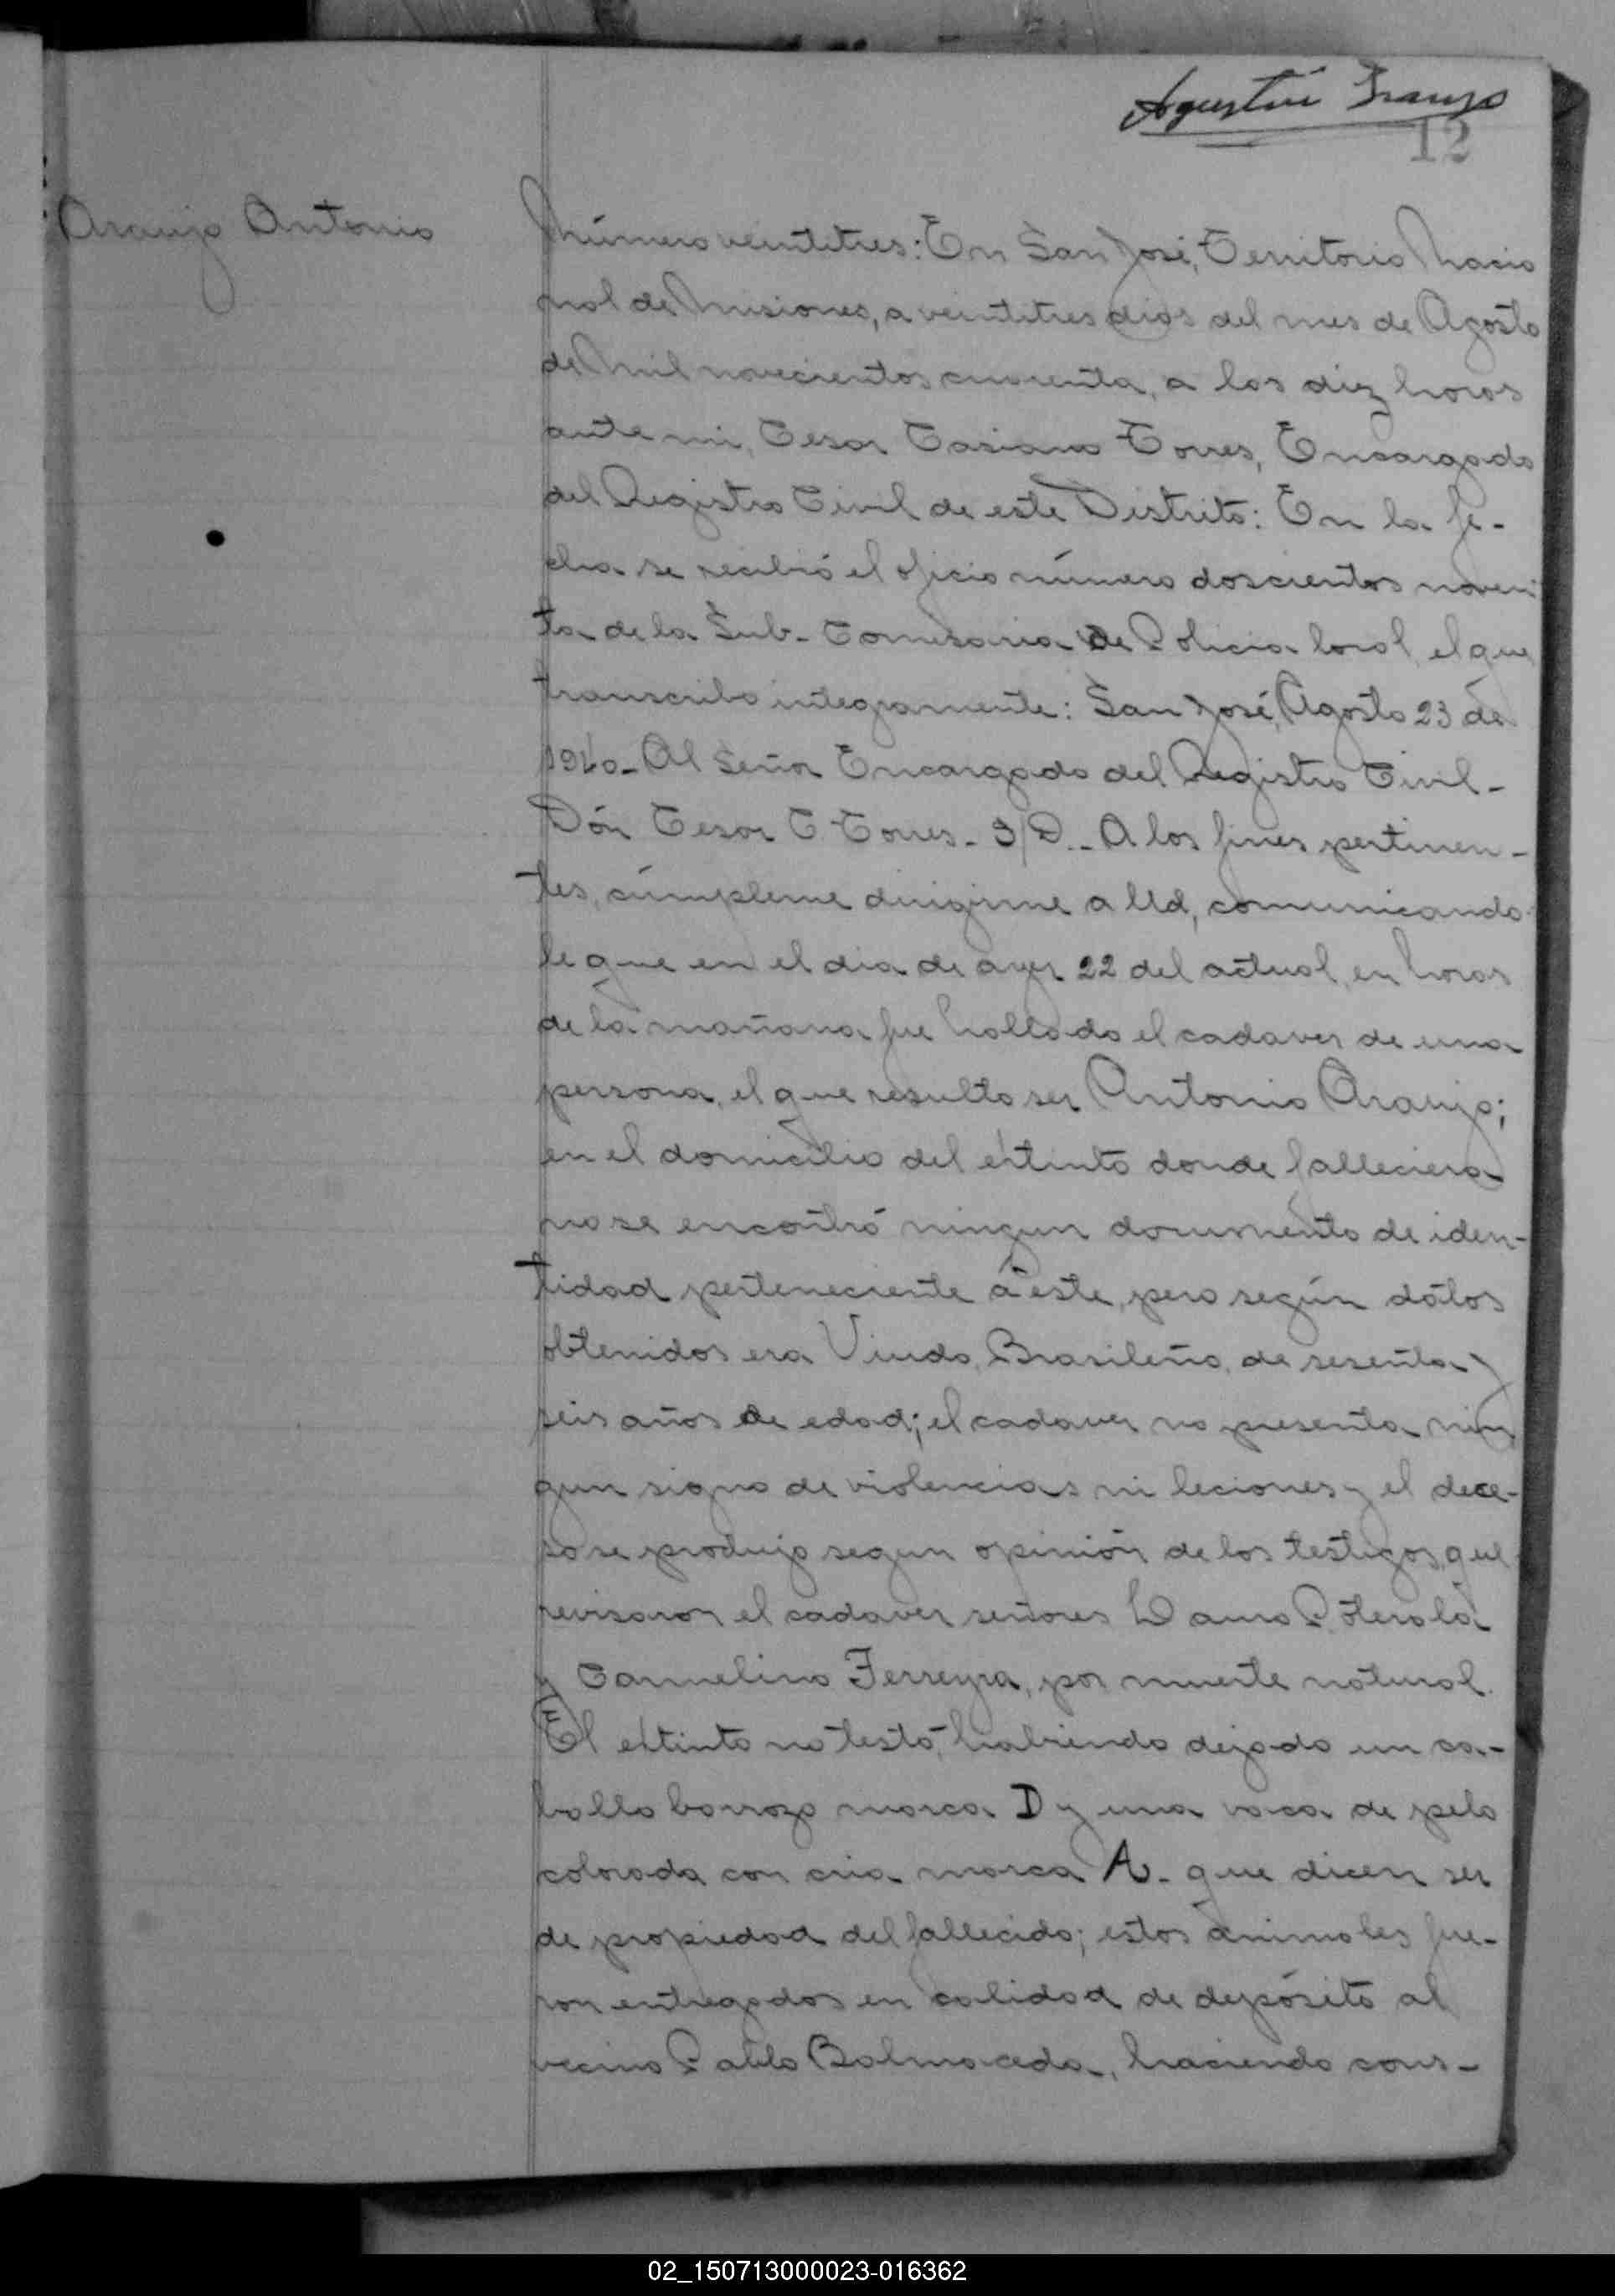 Agustín Franzo
12
Araujo Antonio
Número veintitres: En San José, Territorio Nacio
nal de Misiones, a veintitres dias del mes de Agosto
de Mil novecientos cuarenta, a las diez horas
ante mi, Cesar Casiano Torres, Encargado
del Registro Civil de este Distrito: En la fe-
cha se recibió el oficio número doscientos noven
ta de la Sub-Comisaria de Policia local, el que
transcribo integramente: San José, Agosto 23 de
1940- Al Señor Encargado del Registro Civil-
Dón Cesar C. Torres- S/D.- A los fines pertinen-
tes, cúmpleme dirigirme a Ud, comunicando
le que en el dia de ayer 22 del actual, en horas
de la mañana fue hallado el cadaver de una
persona, el que resulto ser Antonio Araujo;
en el domicilio del extinto donde falleciera
no se encontró ningun documento de iden-
tidad perteneciente a este, pero según datos
obtenidos era Viudo, Brasileño, de sesenta y
seis años de edad; el cadaver no presenta nin
gun signo de violencias ni leciones y el dece-
so se produjo segun opinión de los testigos, que
revisaron el cadaver señores
y Carmelino Ferreyra, por muerte natural.
El extinto no testó, habiendo dejado un ca-
ballo barrozo marca D y una vaca de pelo
colorada con cria marca A- que dicen ser
de propiedad del fallecido; estos animales fue-
ron entregados en calidad de depósito al
vecino Pablo Balmaceda, haciendo cons-
02_150713000023-016362